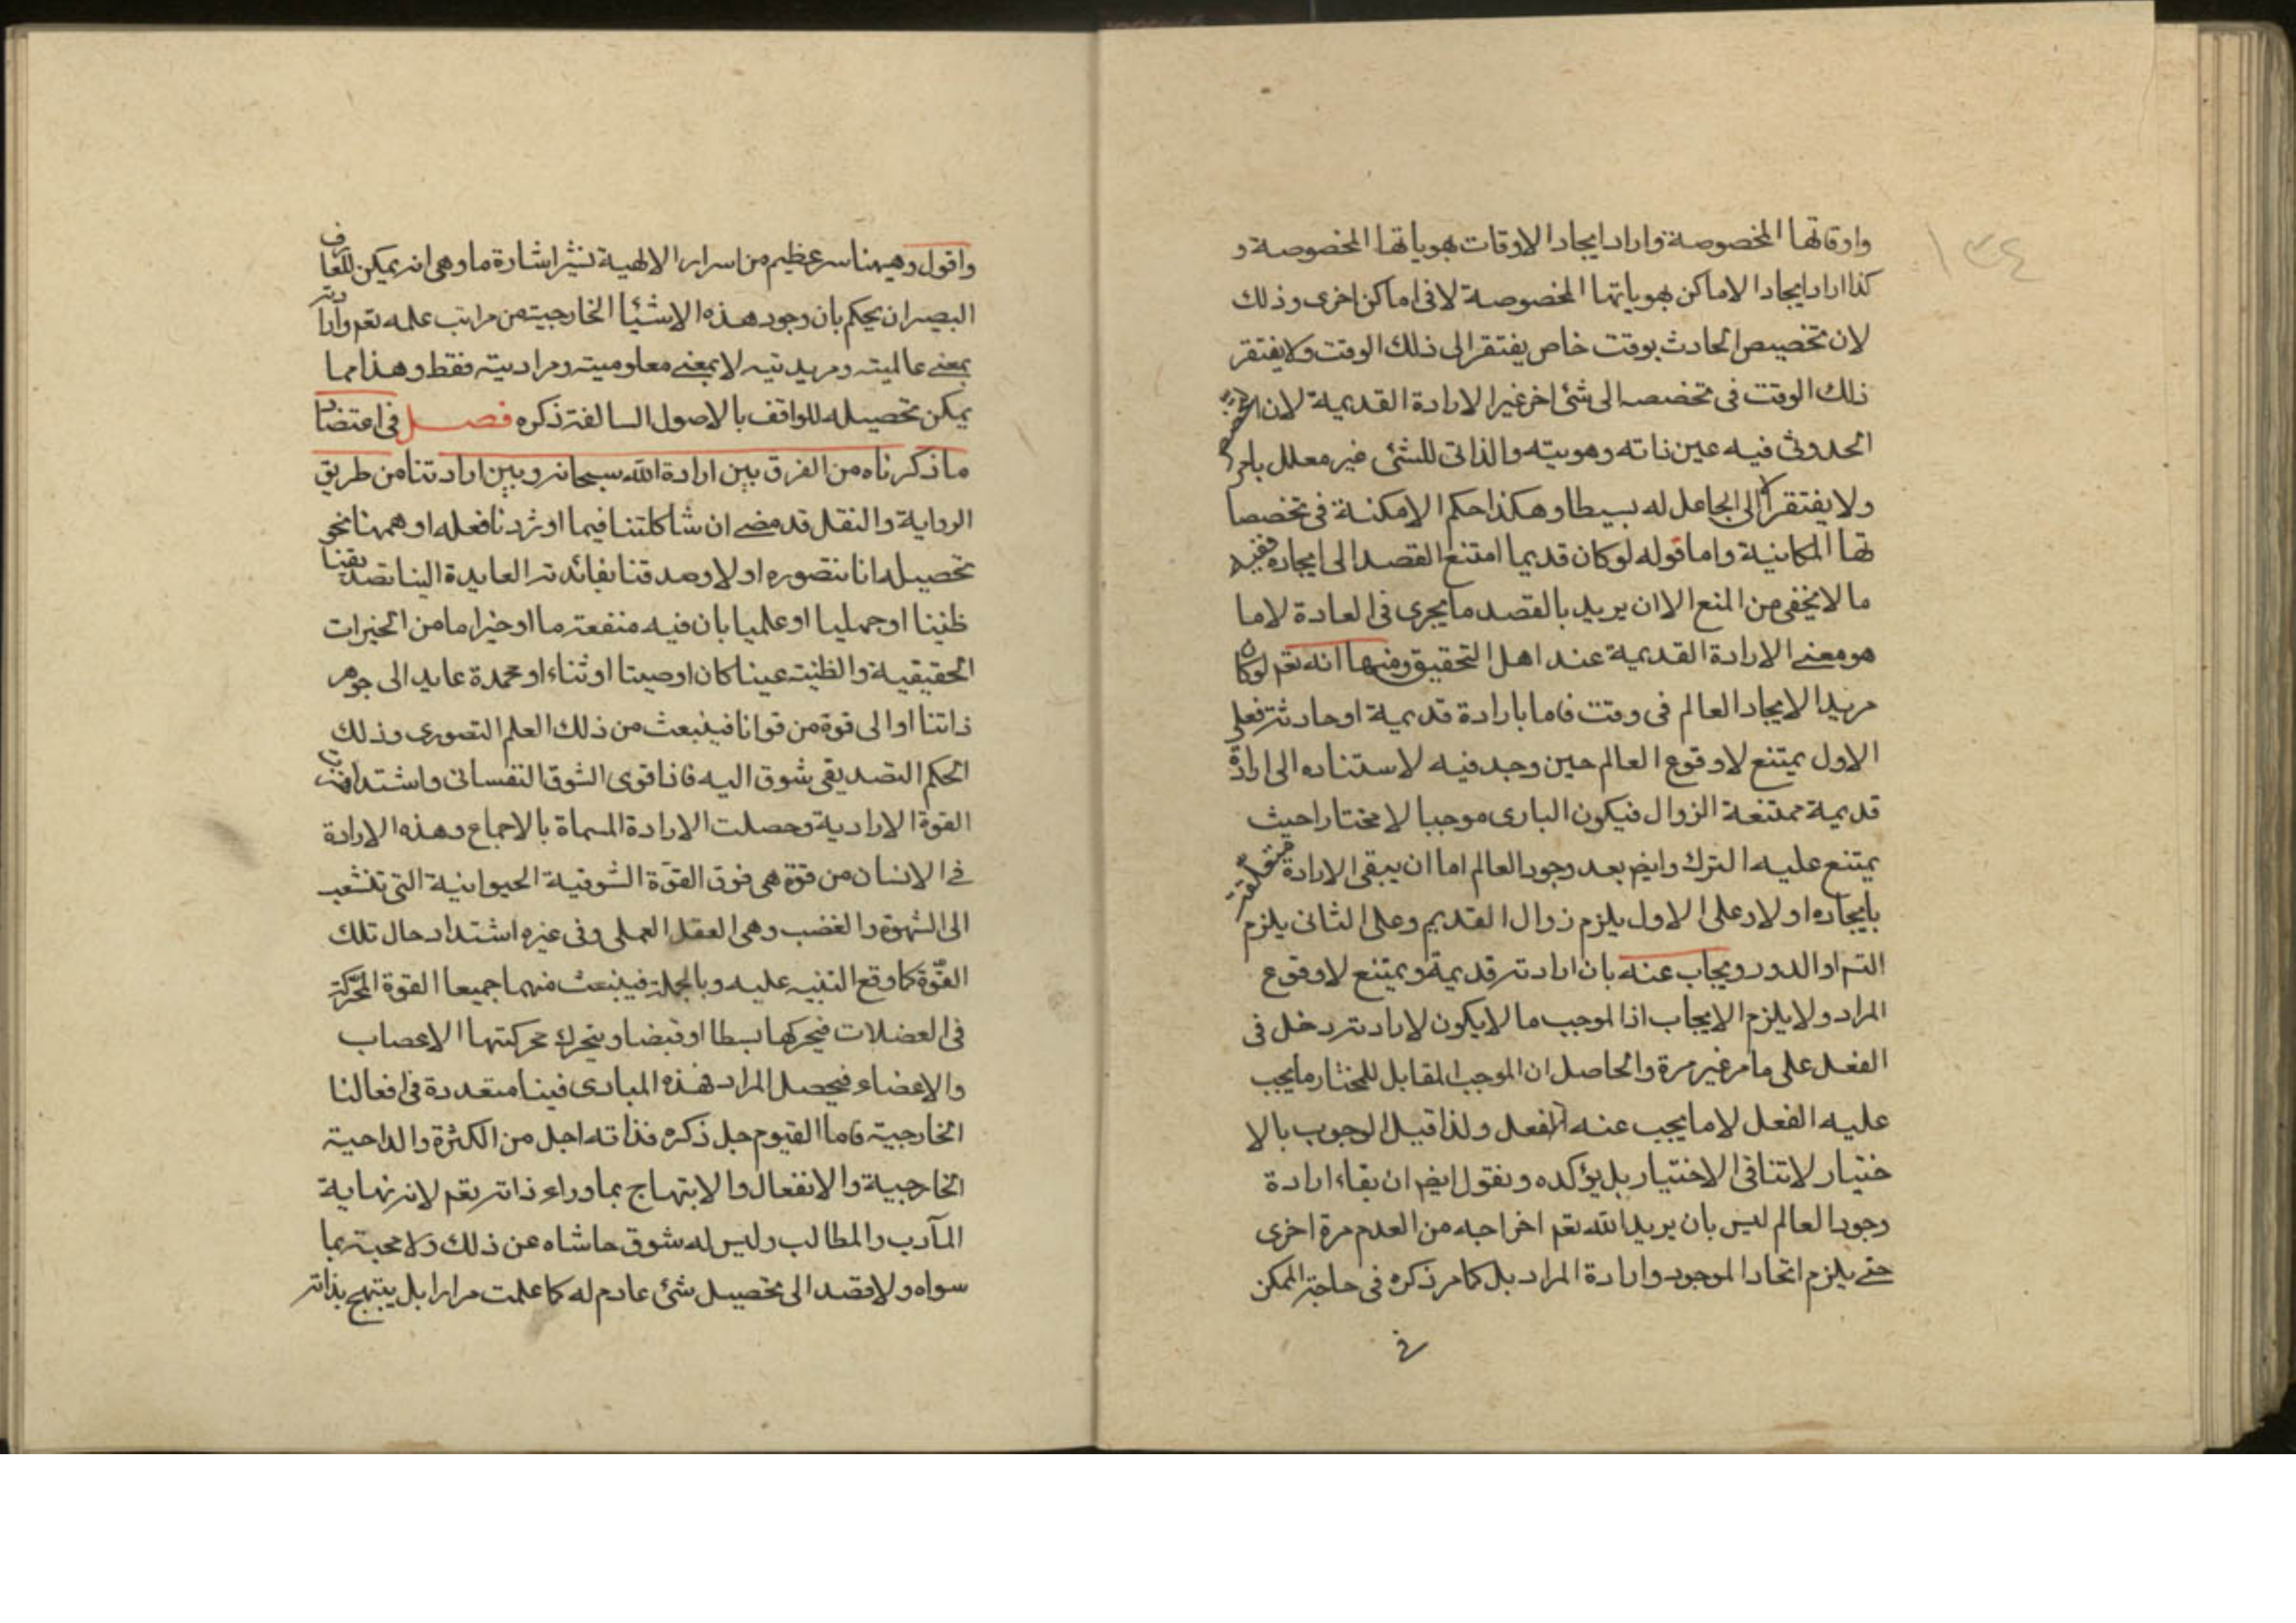 ١٣٤
واوقاتها المخصوصة واراد ايجاد الاوقات بهوياتها المخصوصة و
كذا اراد ايجاد الاماكن بهوياتها المخصوصة لا فى اماكن اخرى وذلك
لان تخصيص الحادث بوقت خاص يفتقر الى ذلك الوقت ولا يفتقر
ذلك الوقت فى تخصصه الى شئ اخر غير الارادة القديمة لان
الحدوثى فيه عين ذاته وهويته والذاتى للشئ غير معلل بامر
ولا يفتقر الا الى الجاعل له بسيطا وهكذا حكم الامكنة فى تخصصا
تها المكانية واما قوله لو كان قديما امتنع القصد الى ايجاده ففيه
ما لا يخفى من المنع الا ان يريد بالقصد ما يجرى فى العادة لا ما
هو معنى الارادة القديمة عند اهل التحقيق ومنها انه تعم لو كان
مريدا لايجاد العالم فى وقت فاما بارادة قديمة او حادثة فعلى
الاول يمتنع لا وقوع العالم حين وجد فيه لاستناده الى ارادة
قديمة ممتنعة الزوال فيكون البارى موجبا لا مختارا حيث
يمتنع عليه الترك وايض بعد وجود العالم اما ان يبقى الارادة متعلقة
بايجاده او لا وعلى الاول يلزم زوال القديم وعلى الثانى يلزم
التم او الدور ويجاب عنه بان ارادته قديمة ويمتنع لا وقوع
المراد ولا يلزم الايجاب اذ الموجب ما لا يكون لارادته دخل فى
الفعل على ما مر غير مرة والحاصل ان الموجب المقابل للمختار ما يجب
عليه الفعل لا ما يجب عنه الفعل ولذا قيل الوجوب بالا
ختيار لا تنافى الاختيار بل يؤكده ونقول ايض ان بقاء ارادة
وجود العالم ليس بان يريد الله تعم اخراجه من العدم مرة اخرى
حتى يلزم اتحاد الموجود وارادة المراد بل كما مر ذكره فى حاجة الممكن
فى
واقول وههنا سر عظيم من اسرار الالهية نشير اشارة ما وهى انه يمكن للعارف
البصير ان يحكم بان وجود هذه الاشيا الخارجية من مراتب علمه تعم وارادته
بمعنى عالميته ومريديته لا بمعنى معلوميته ومراديته فقط وهذا مما
يمكن تحصيله للواقف بالاصول السالفة ذكره فصل فى اقتضاب
ما ذكرناه من الفرق بين ارادة الله سبحانه وبين ارادتنا من طريق
الرواية والنقل قد مضى ان شاكلتنا فيما اوثرنا فعله او هممنا نحو
تحصيله انا نتصوره اولا وصدقنا بفائدته العايدة الينا تصديقنا
ظنيا او جهليا او علميا بان فيه منفعة ما او خيرا ما من الخيرات
الحقيقية والظنية عينا كان او صيتا او ثناء او محمدة عايد الى جوهر
ذاتنا او الى قوة من قوانا فينبعث من ذلك العلم التصورى وذلك
الحكم التصديقى شوق اليه فاذا قوى الشوق النفسانى واشتد
القوة الارادية وحصلت الارادة المسماة بالاجماع وهذه الارادة
فى الانسان من قوة هى فوق القوة الشوقية الحيوانية التى تنشعب
الى الشهوة والغضب وهى العقل العملى وفى غيره اشتداد حال تلك
القوة كما وقع التنبيه عليه وبالجملة فينبعث منهما جميعا القوة المحركة
فى العضلات فيحركها بسطا او قبضا ويتحرك بحركتها الاعصاب
والاعضاء فيحصل المراد فهذه المبادى فينا متعددة فى افعالنا
الخارجية فاما القيوم جل ذكره فذاته اجل من الكثرة والداعية
الخارجية والانفعال والابتهاج بما وراء ذاته تعم لانه نهاية
المآرب والمطالب وليس له شوق حاشاه عن ذلك ولا محبة بما
سواه ولا قصد الى تحصيل شئ عادم له كما علمت مرارا بل يبتهج بذاته